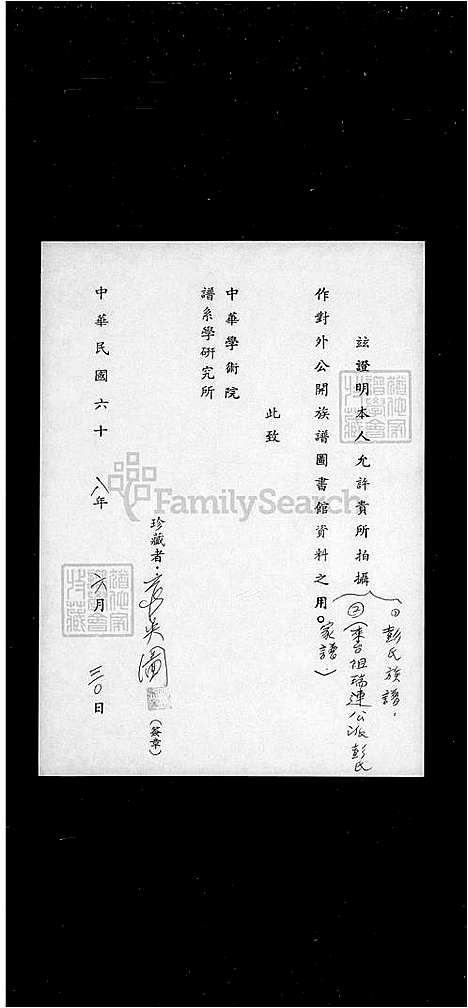 玆證明本人允許貴所拍攝
①彭氏族譜，
②(來台祖瑞連公派彭氏
家譜.)
作對外公開族譜圖書館資料之用。
此致
中華學術院
譜系學研究所
珍藏者．
(簽章)
中華民國六十八年六月三〇日
FamilySearch